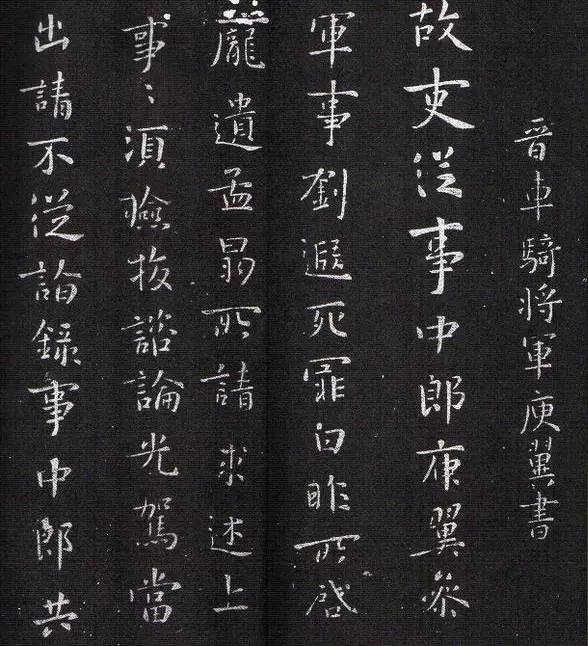 晉車騎将軍庾翼書
故吏從事中郎庾翼參
軍事劉遐死罪白昨所啓
龐遺孟昺所請求述上
事〻須檢校諮論光駕當
出請不從詣録事中郎共